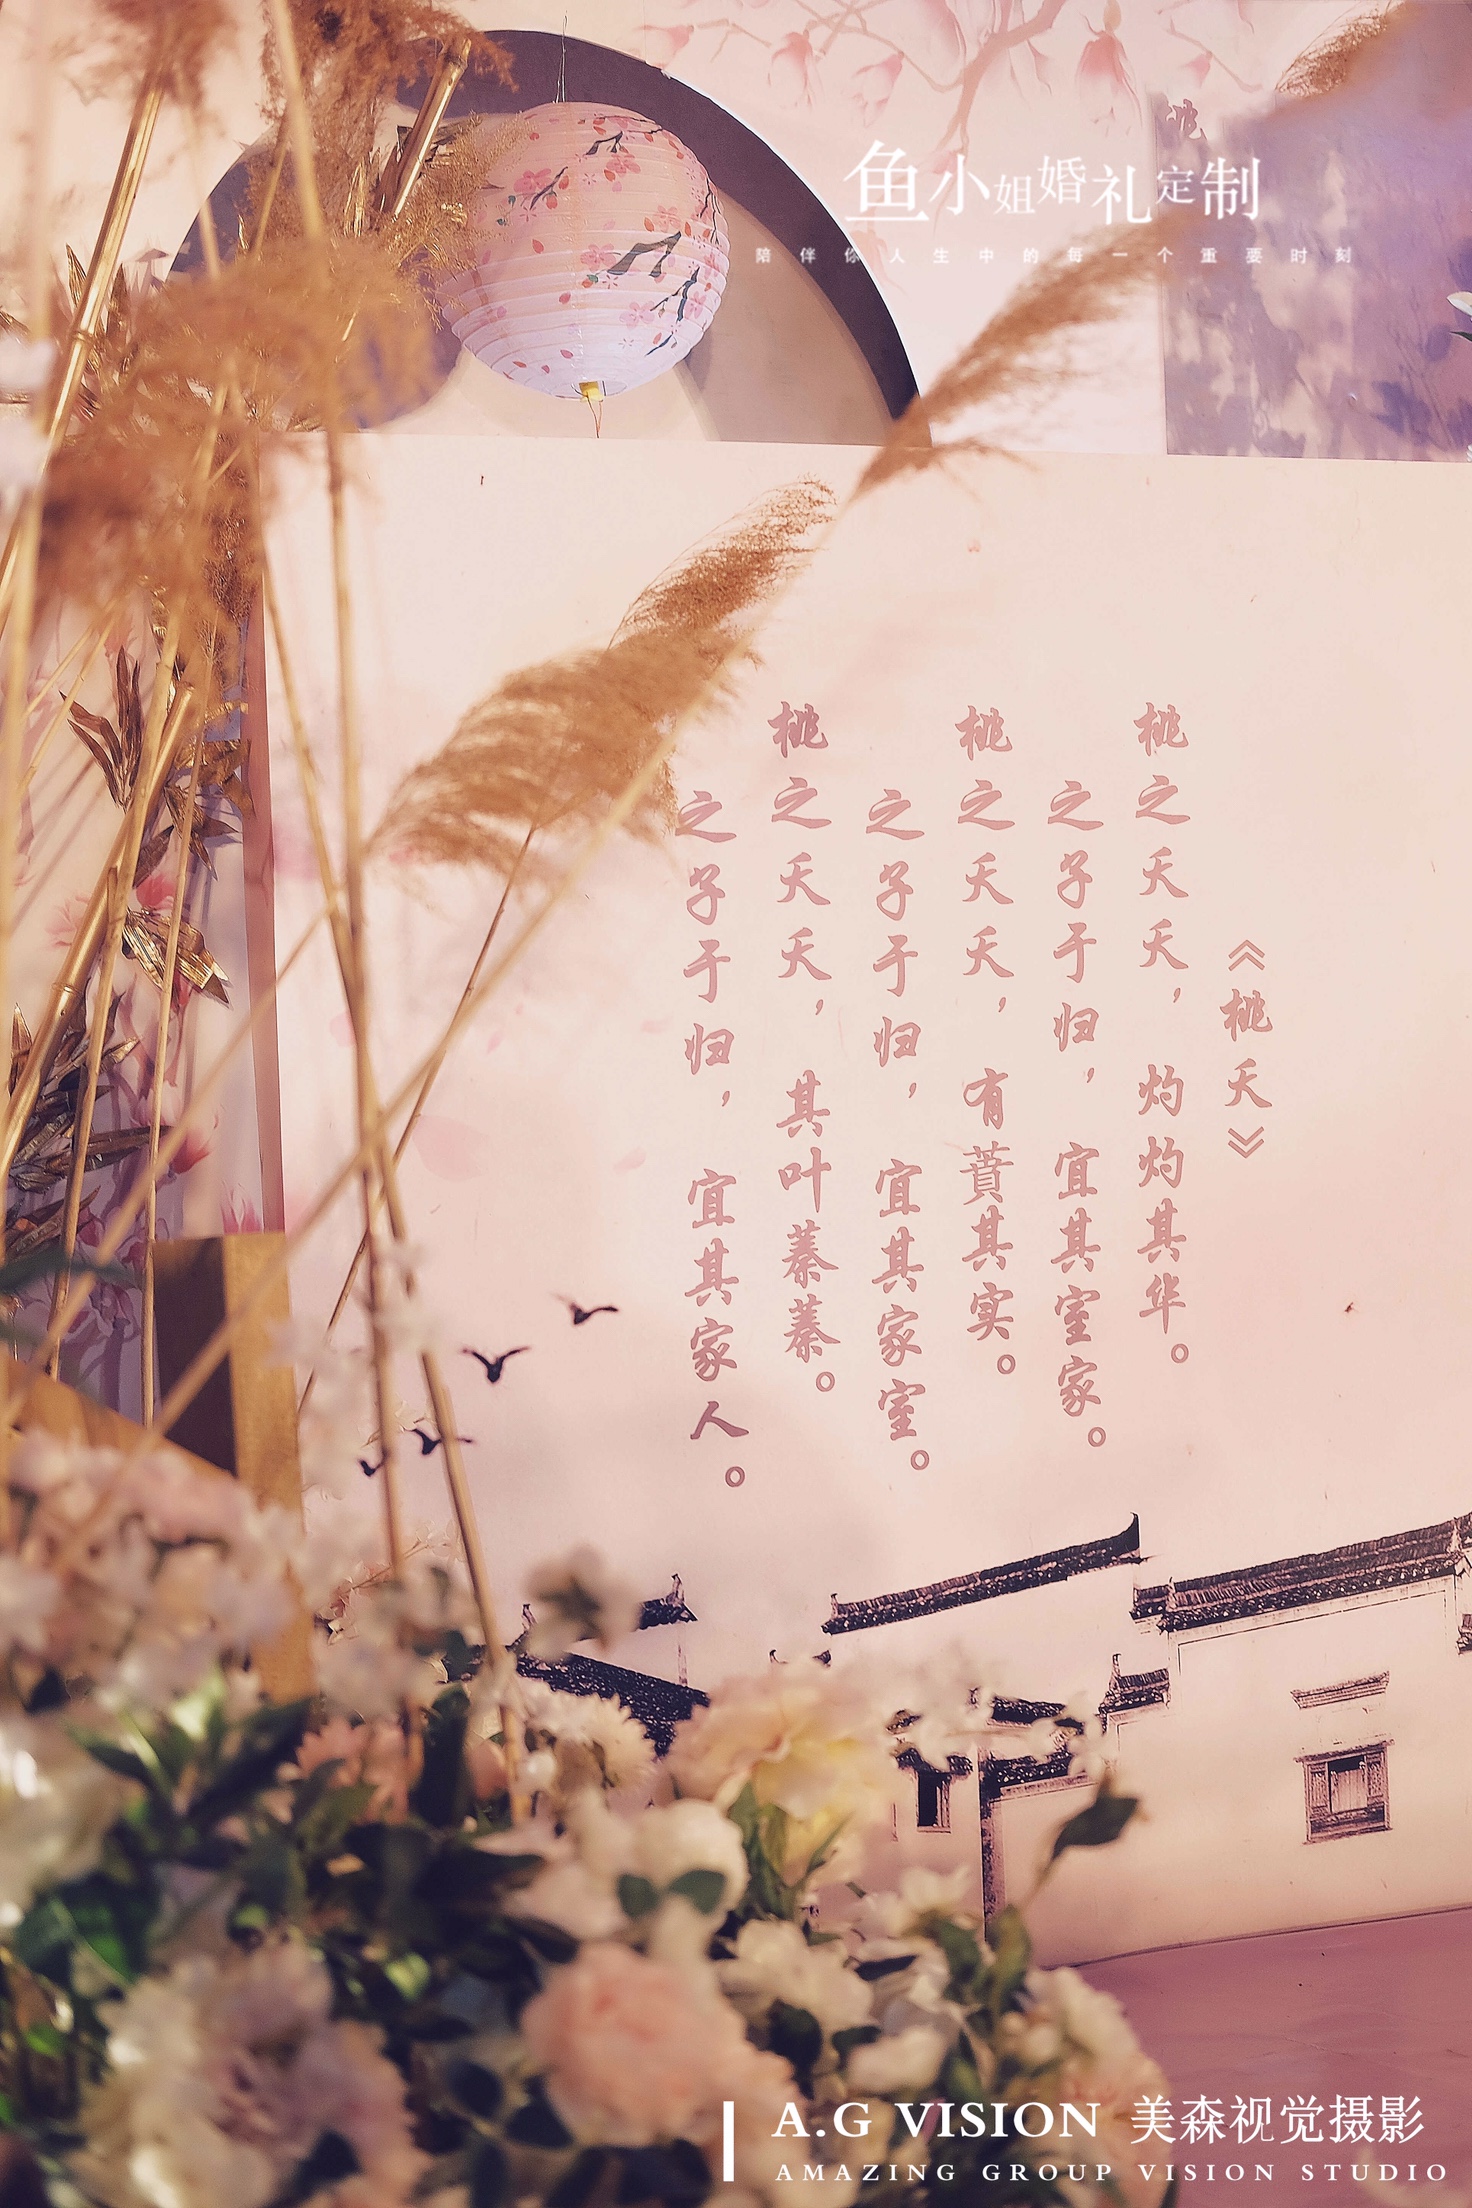 桃
鱼小姐婚礼定制
陪伴你人生中的每一个重要时刻
《桃夭》
桃之夭夭，灼灼其华。
之子于归，宜其室家。
桃之夭夭，有蕡其实。
之子于归，宜其家室。
桃之夭夭，其叶蓁蓁。
之子于归，宜其家人。
A.G VISION 美森视觉摄影
AMAZING GROUP VISION STUDIO